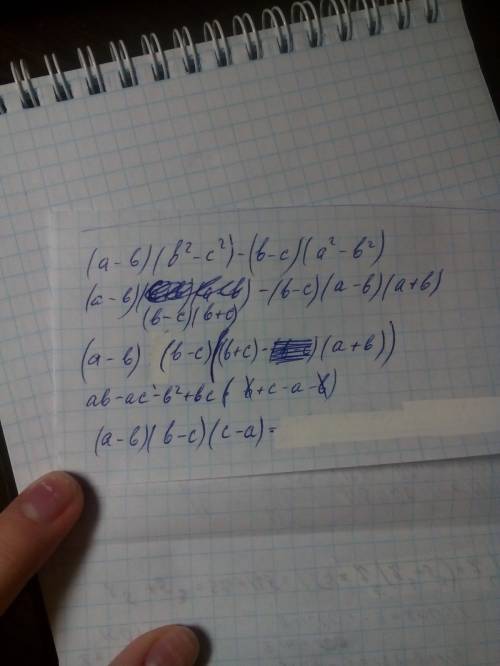 (a-b)(b²-c²)-(b-c)(a²-b²)
(a-b)( )-(b-c)(a-b)(a+b)
(b-c)(b+c)
(a-b) (b-c)((b+c)- (a+b))
ab-ac-b²+bc( b+c-a-b)
(a-b)(b-c)(c-a)=